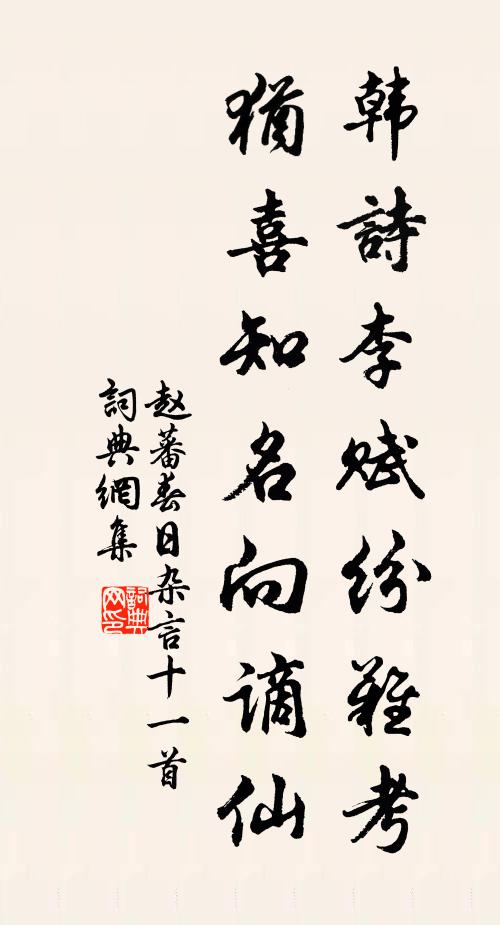 韩詩李赋纷難考
猶喜知名向謫仙
赵蕃春日杂言十一首
詞典網集
詞典网印